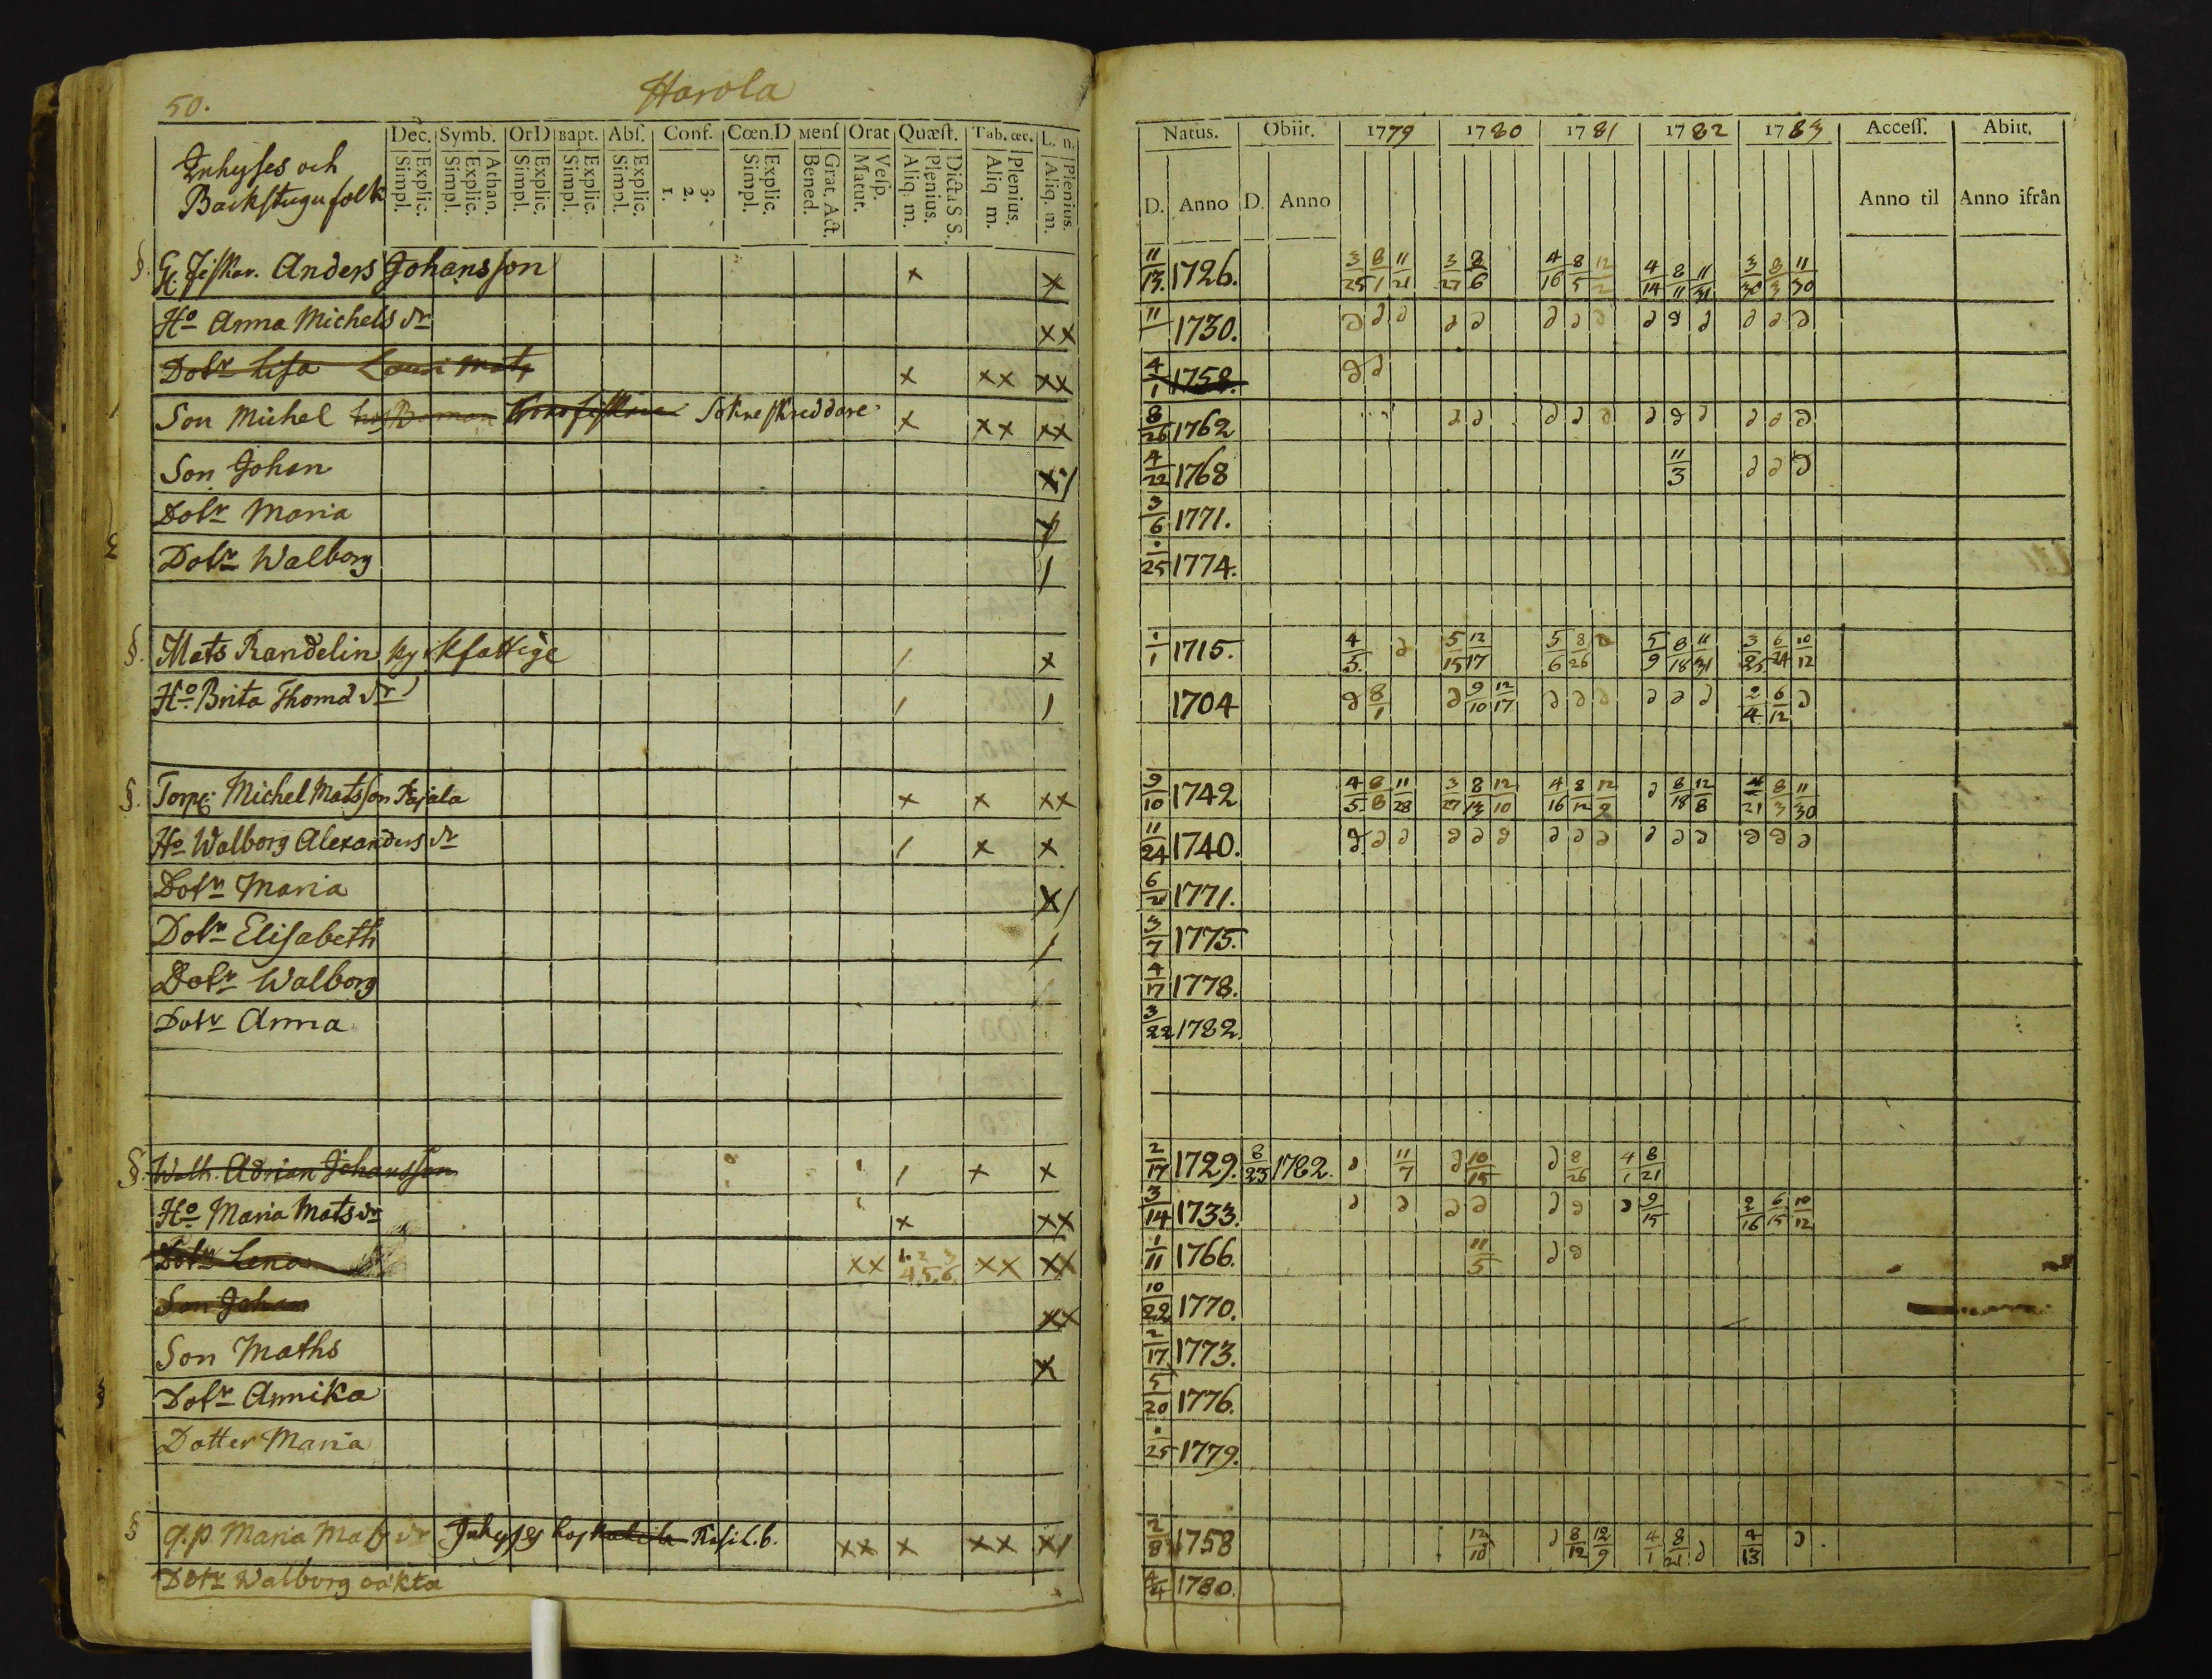 50.
Harola
Inhyses och
Backstugu folk
Dec. Symb. OrD Bapt. Abſ. Conf. Cœn.D Menſ Orat Quæſt. Tab. œc. L. n.
Explic. Simpl. Athan. Explic. Simpl. Explic. Simpl. Explic. Simpl. Explic. Simpl. 3. 2. 1. Explic. Simpl. Grat. Act. Bened. Veſp. Matut. Dicta S S. Plenius. Aliq. m. Plenius. Aliq m. Plenius. Aliq. m.
§. Fiskar. Anders Johansson x x
Ho Anna Michels dr xx
Dotr Lisa x xx xx
Son Michel Sokneskreddare x xx xx
Son Johan x/
Dotr Maria
Dotr Walborg /
§. Mats Randelin kyrkfattige / x
Ho Brita Thoma dr / /
§. Torp. Michel Matsson Kajala x x xx
Ho Walborg Alexanders dr / x x
Dotr Maria x/
Dotr Elisabeth /
Dotr Walborg
Dotr Anna
§. Adrian Johansson / x x
Ho Maria Mats dr x xx
Dotr Lena xx 1. 2 3 4. 5. 6. xx xx
Son Johan xx
Son Maths x
Dotr Annika
Dotter Maria
§ q.p. Maria Mats dr Inhyses hos xx x xx x/
Dotr Walborg oäkta
Natus. Obiit. 1779 1780 1781 1782 1783 Acceſſ. Abiit.
D. Anno D. Anno Anno til Anno ifrån
11/13. 1726. 3/25 8/1 11/21 3/27 8/6 4/16 8/5 12/2 4/14 8/11 11/31 3/30 8/3 11/30
11 1730.
4/1 1758.
8/26 1762
4/22 1768 11/3
3/6 1771.
25 1774.
1/1 1715. 4/5. 5/15 12/17 5/6 8/26 5/9 8/18 11/31 3/25 6/24 10/12
1704 8/1 9/10 12/17 2/4 6/12
9/10 1742 4/5 8/8 11/28 3/27 8/13 12/10 4/16 8/12 12/9 8/18 12/8 4/21 8/3 11/30
11/24 1740.
6/21 1771.
3/7 1775.
4/17 1778.
3/22 1782.
2/17 1729. 8/23 1782. 11/7 10/15 8/26 4/1 8/21
3/14 1733. 9/15 2/16 6/15 10/12
1/11 1766. 11/5
10/22 1770.
2/17 1773.
5/20 1776.
25 1779.
2/8 1758 12/10 8/12 12/9 4/1 8/21 4/13
4/4 1780.